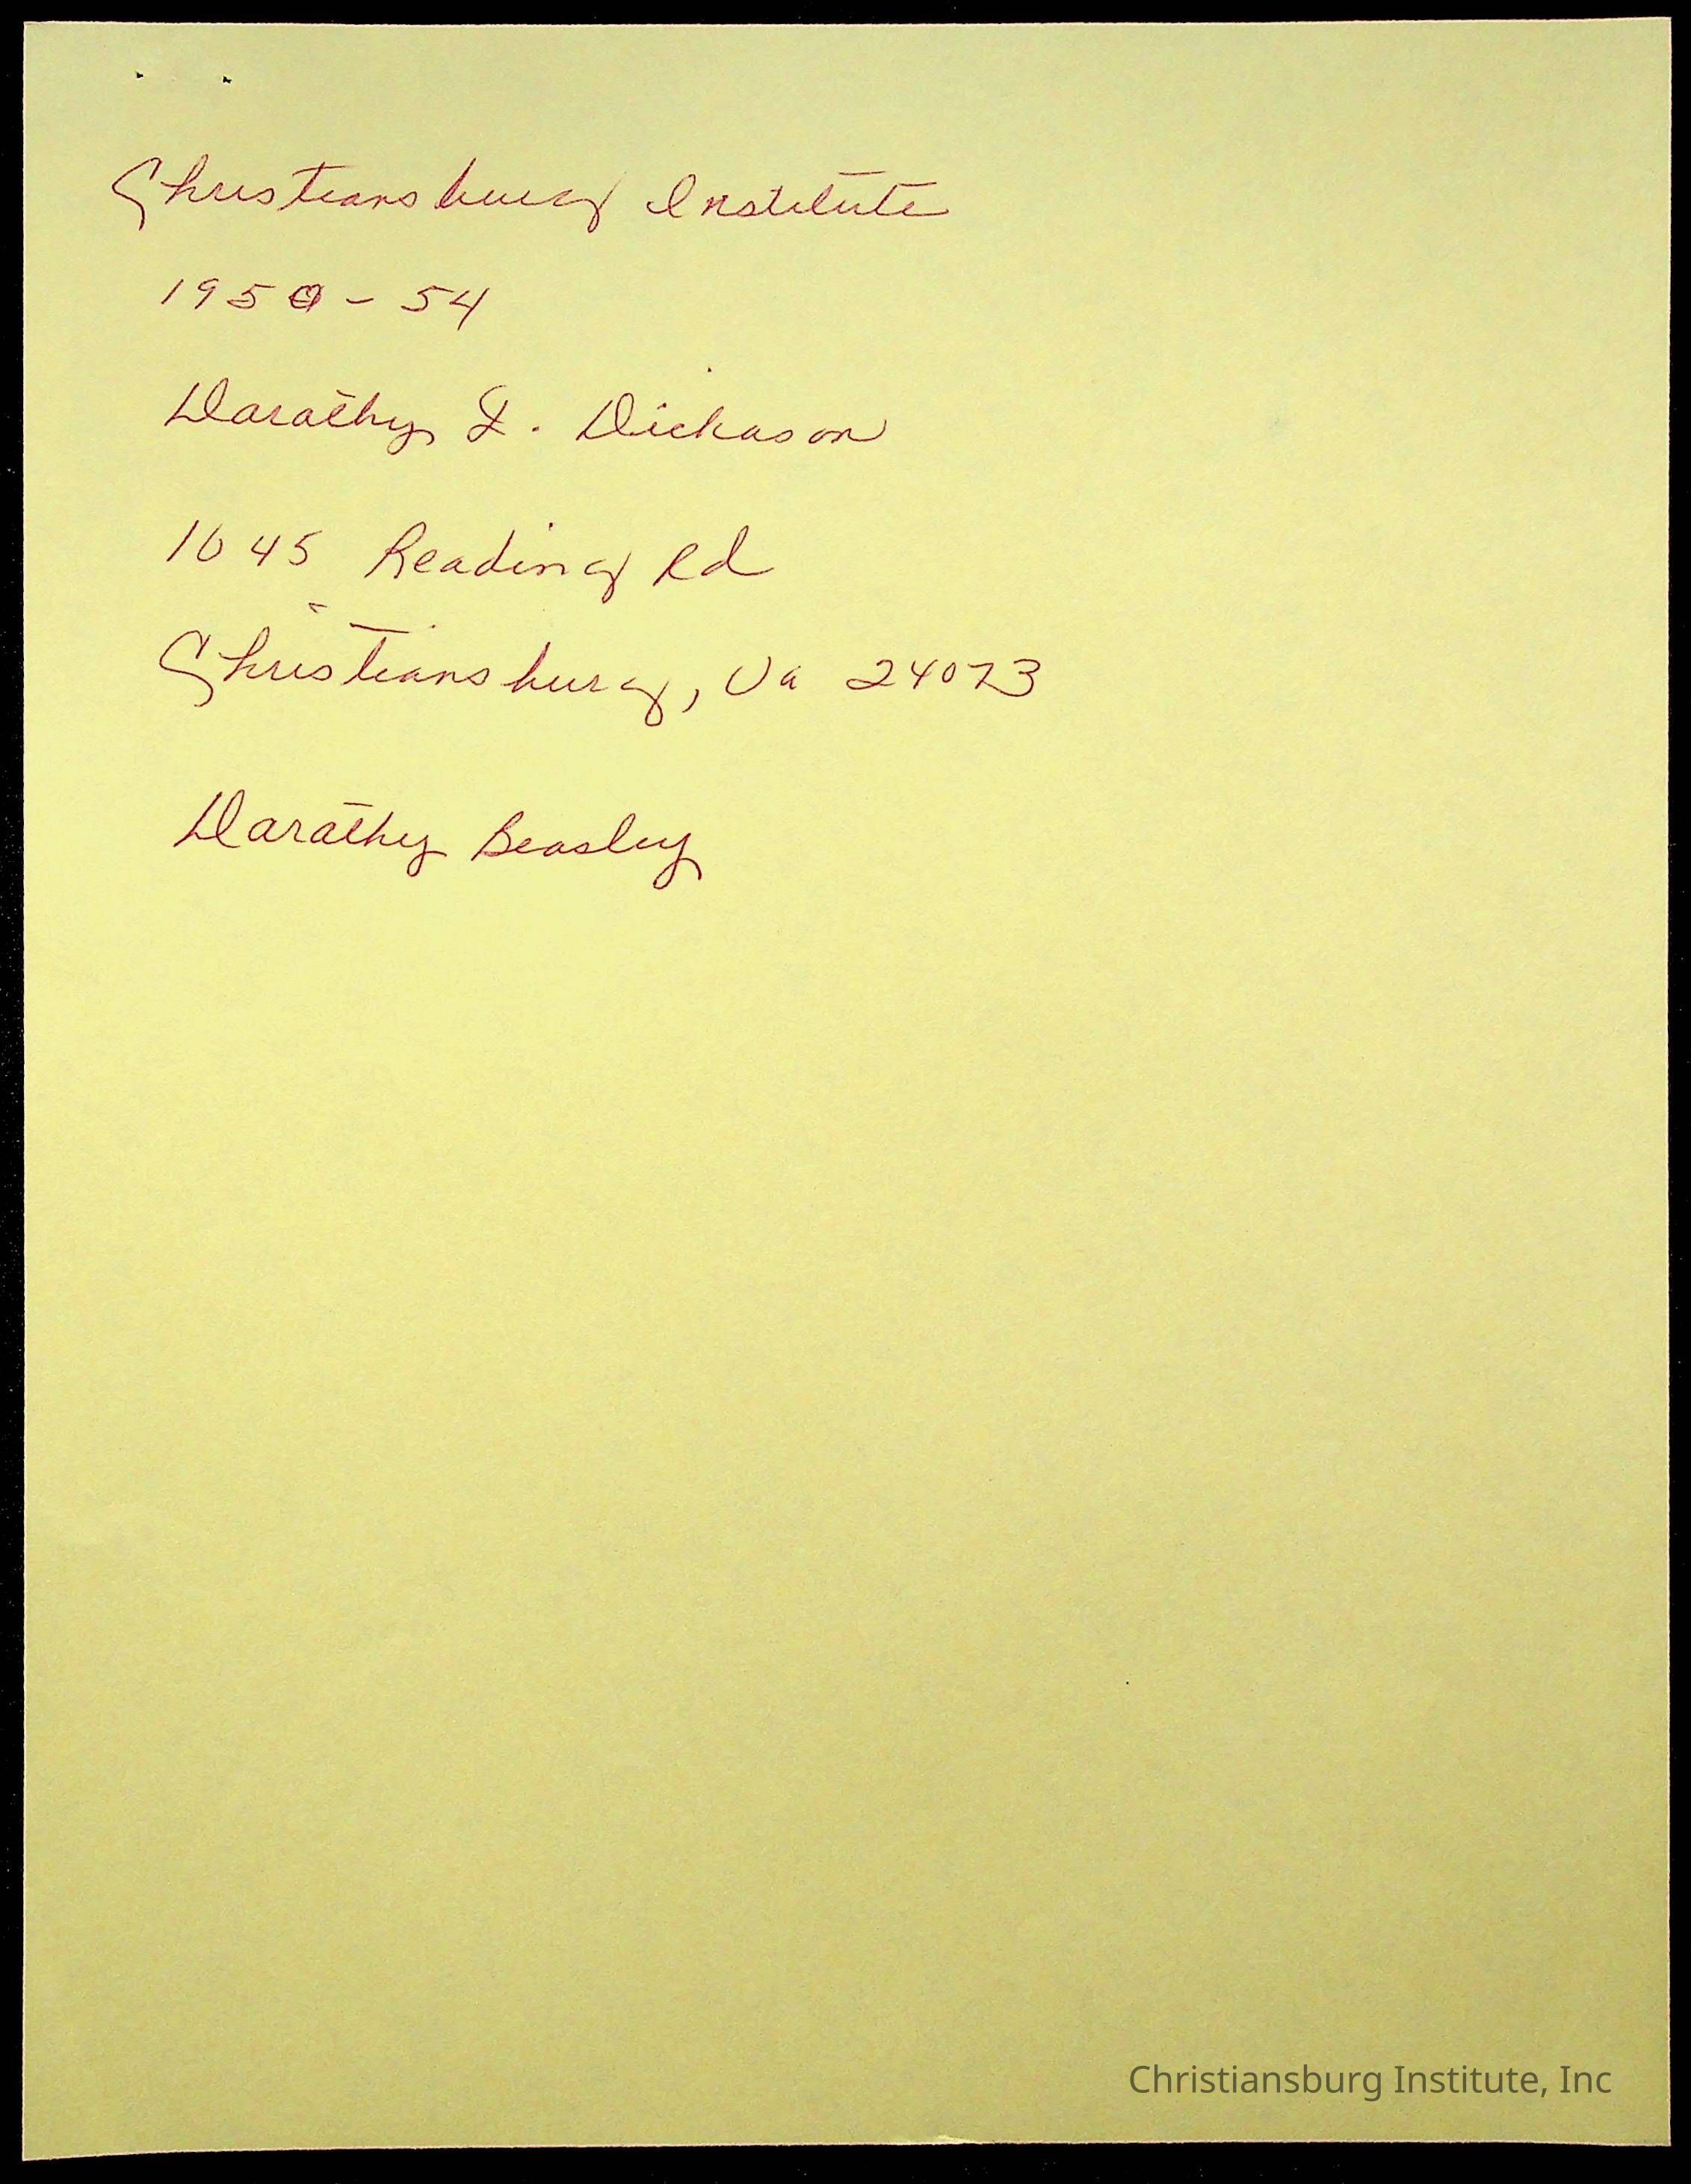 Christiansburg Institute
1950 - 54
Dorothy L. Dickason
1045 Reading Rd
Christiansburg, Va 24073
Dorothy Beasley
Christiansburg Institute, Inc